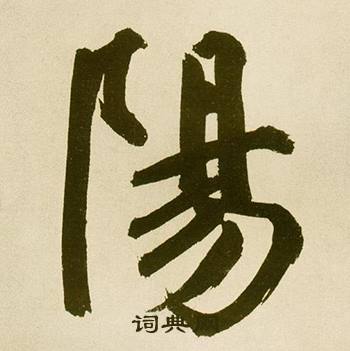 陽
词典网